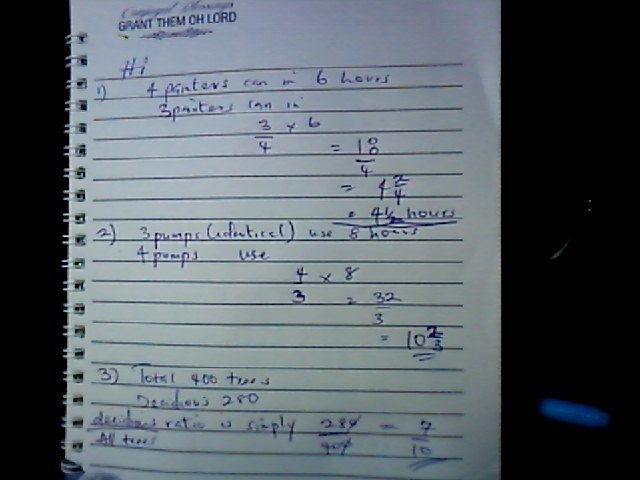 Conjugal Blessings
GRANT THEM OH LORD
Hi
1) 4 painters can in 6 hours
3 painters can in
3/4 × 6
= 18/4
= 4 2/4
= 4½ hours
2) 3 pumps (identical) use 8 hours
4 pumps use
4/3 × 8
= 32/3
= 10 2/3
3) Total 400 trees
280
deciduous ratio is simply 280/400 = 7/10
All trees